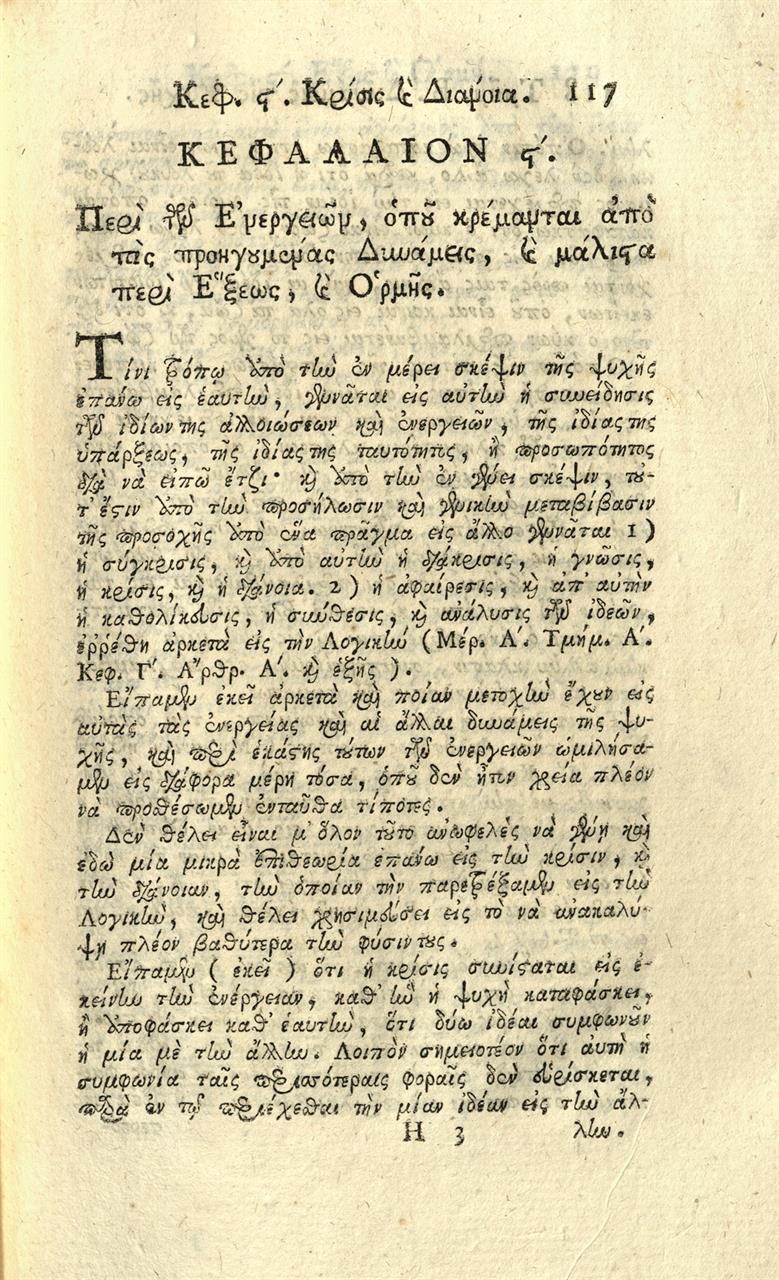 Κεφ. ϛʹ. Κρίσις ϗ Διάνοια. 117
ΚΕΦΑΛΑΙΟΝ ϛʹ.
Περὶ τῶν Ἐνεργειῶν, ὁποῦ κρέμανται ἀπὸ
τὰς προηγουμένας Δυνάμεις, ϗ μάλιστα
περὶ Ἕξεως, ϗ Ὁρμῆς.
Τίνι τρόπῳ ἀπὸ τὴν ἐν μέρει σκέψιν τῆς ψυχῆς
ἐπάνω εἰς ἑαυτὴν, γεννᾶται εἰς αὐτὴν ἡ συνείδησις
τῶν ἰδίων της ἀλλοιώσεων καὶ ἐνεργειῶν, τῆς ἰδίας της
ὑπάρξεως, τῆς ἰδίας της ταυτότητος, ἢ προσωπότητος
διὰ νὰ εἰπῶ ἔτζι· ϗ ἀπὸ τὴν ἐν γένει σκέψιν, τού-
τ' ἔστιν ἀπὸ τὴν προσήλωσιν καὶ γενικὴν μεταβίβασιν
τῆς προσοχῆς ἀπὸ ἕνα πρᾶγμα εἰς ἄλλο γεννᾶται 1)
ἡ σύγκρισις, ϗ ἀπὸ αὐτὴν ἡ διάκρισις, ἡ γνῶσις,
ἡ κρίσις, ϗ ἡ διάνοια. 2) ἡ ἀφαίρεσις, ϗ ἀπ' αὐτὴν
ἡ καθολίκευσις, ἡ σύνθεσις, ϗ ἀνάλυσις τῶν ἰδεῶν,
ἐῤῥέθη ἀρκετὰ εἰς τὴν Λογικὴν (Μέρ. Α΄. Τμήμ. Α΄.
Κεφ. Γ΄. Ἄρθρ. Α΄. ϗ ἑξῆς).
Εἴπαμεν ἐκεῖ ἀρκετὰ καὶ ποίαν μετοχὴν ἔχουν εἰς
αὐτὰς τὰς ἐνεργείας καὶ αἱ ἄλλαι δυνάμεις τῆς ψυ-
χῆς, καὶ περὶ ἑκάστης τούτων τῶν ἐνεργειῶν ὡμιλήσα-
μεν εἰς διάφορα μέρη τόσα, ὁποῦ δὲν ἦτον χρεία πλέον
νὰ προθέσωμεν ἐνταῦθα τίποτες.
Δὲν θέλει εἶναι μ' ὅλον τοῦτο ἀνωφελὲς νὰ γένῃ καὶ
ἐδῶ μία μικρὰ ἐπιθεωρία ἐπάνω εἰς τὴν κρίσιν, ϗ
τὴν διάνοιαν, τὴν ὁποίαν τὴν παρετρέξαμεν εἰς τὴν
Λογικὴν, καὶ θέλει χρησιμεύσει εἰς τὸ νὰ ἀνακαλύ-
ψῃ πλέον βαθύτερα τὴν φύσιν τους.
Εἴπαμεν (ἐκεῖ) ὅτι ἡ κρίσις συνίσταται εἰς ἐ-
κείνην τὴν ἐνέργειαν, καθ' ἣν ἡ ψυχὴ καταφάσκει,
ἢ ἀποφάσκει καθ' ἑαυτὴν, ὅτι δύω ἰδέαι συμφωνοῦν
ἡ μία μὲ τὴν ἄλλην. Λοιπὸν σημειοτέον ὅτι αὐτὴ ἡ
συμφωνία ταῖς περισσότεραις φοραῖς δὲν εὑρίσκεται,
παρὰ ἐν τῷ περιέχεσθαι τὴν μίαν ἰδέαν εἰς τὴν ἄλ-
Η 3 λην.